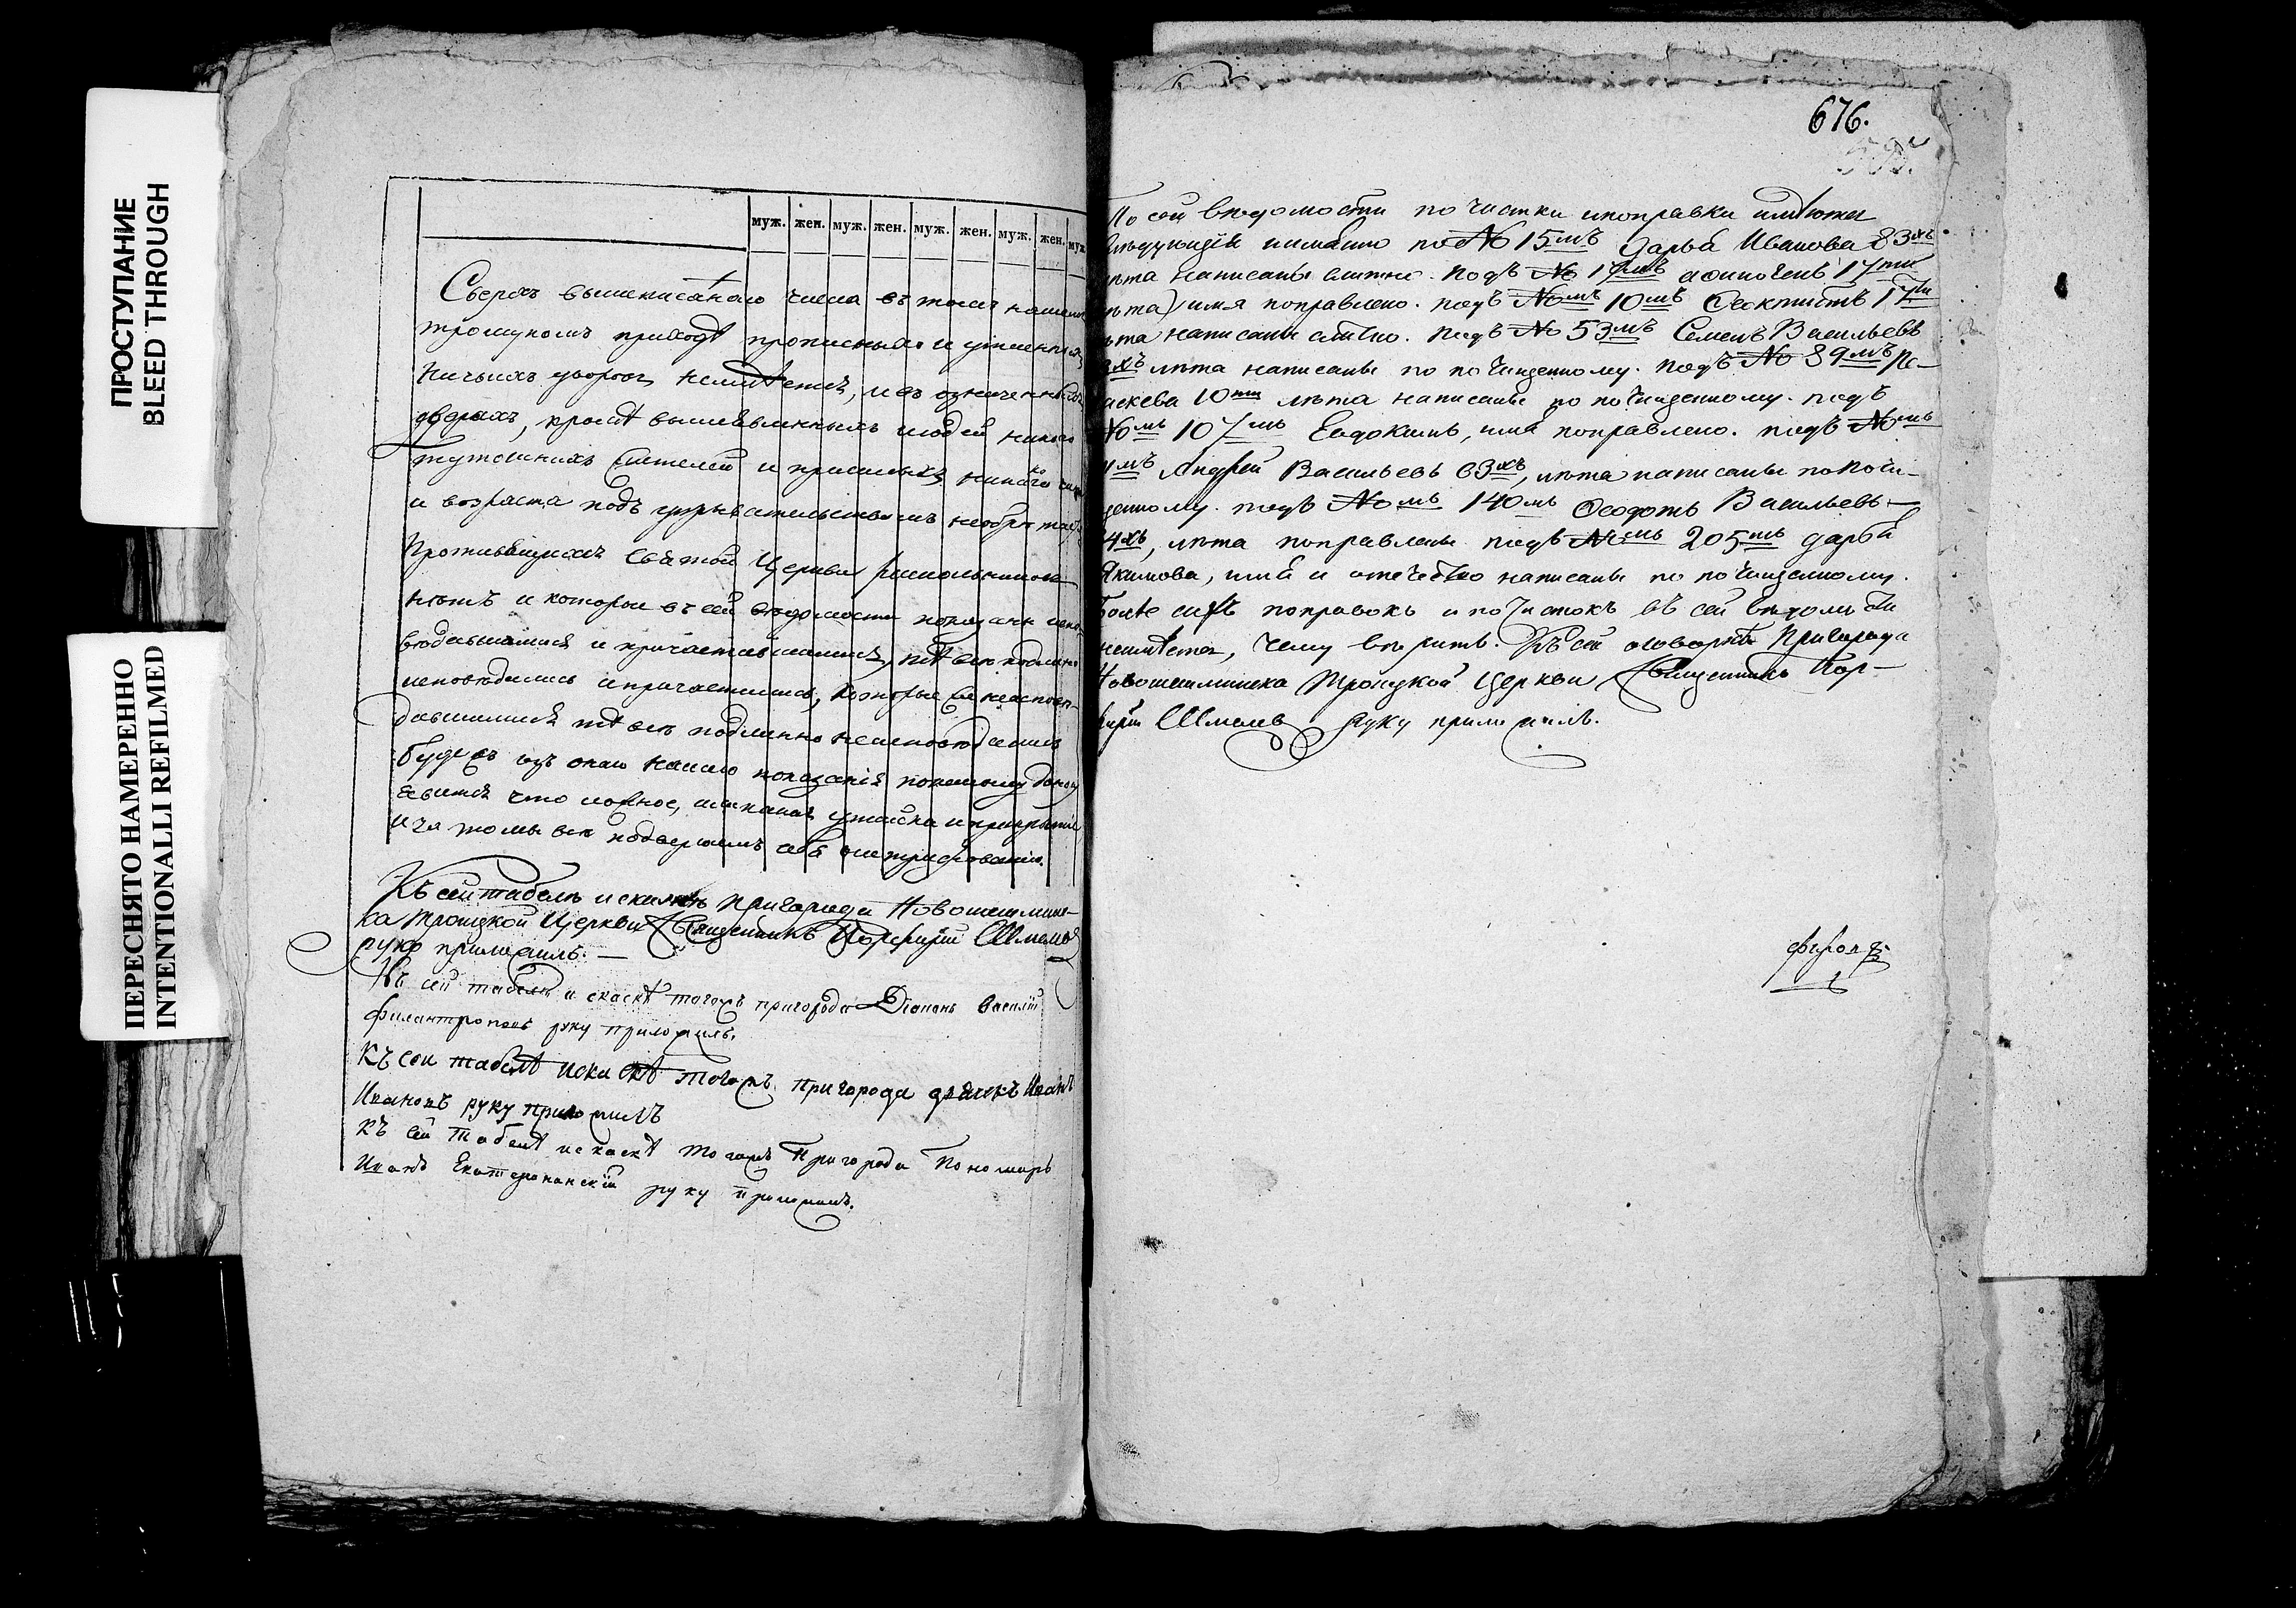 ПРОСТУПАНИЕ
BLEED THROUGH
ПЕРЕСНЯТО НАМЕРЕННО
INTENTIONALLI REFILMED
муж. жен. муж. жен. муж. жен. муж. жен. муж
Сверхъ вышеписаннаго числа въ томъ нашемъ
троицкомъ приходѣ прописныхъ и утаенныхъ
ничьихъ дворовъ неимѣется, и въ означенныхъ
дворахъ, кромѣ вышеявленныхъ людей никого
тутошнихъ жителей и пришлыхъ никакого чина
и возраста подъ укрывательствомъ необрѣтается
Противящихся Святой Церкви раскольниковъ
нѣтъ и которыя въ сей вѣдомости показаны испо-
вѣдавшимися и причастившимися, тѣ всѣ подлинно
исповѣдались и причастились, а которыя неисповѣ-
давшимися тѣ всѣ подлинно неисповѣдались
Будежъ изъ онаго нашего показанія покажому доносу
явится что ложное, или какая утайка и прикрытіе,
и за то мы всѣ подвергаемъ себя
Къ сей табели и сказкѣ пригорода Новошешминс-
ка Троицкой Церкви Священникъ Порфирій Шмелев
руку приложилъ. —
Къ сей табели и сказкѣ тогожъ пригорода Діаконъ Василій
Филантроповъ руку приложилъ.
Къ сеи табелѣ искаскѣ тогожъ пригорода дьячекъ Иванъ
Ивановъ руку приложилъ
Къ сей табелѣ искаскѣ тогожъ Пригорода Пономарь
Иванъ руку приложилъ.
676.
По сей вѣдомости почистки ипоправки имѣются
слѣдующія иимянно под№ 15мъ Дарья Иванова 83хъ
лѣта написаны Подъ № 17ти
лѣта) имя поправлено. подъ №мъ 10мъ Феоктистъ 17ти
лѣта написаны подъ № 53мъ Семенъ Васильевъ
хъ лѣта написаны по почищенному. подъ № 89мъ Па-
раскева 10ти лѣта написаны по почищенному. подъ
№мъ 107мъ Евдокимъ, имя поправлено. подъ №мъ
мъ Андрей Васильевъ 63хъ, лѣта написаны попочи-
щенному. подъ №мъ 140мъ Федотъ Васильевъ
4хъ, лѣта поправлены подъ №мъ 205мъ дарья
Якимова, имя и отечество написаны по почищенному.
Болѣе сихъ поправокъ и почистокъ въ сей вѣдомости
неимѣется, чему вѣрить. Къ сей оговоркѣ Пригорода
Новошешминска Троицкой Церкви Священникъ Пор-
фирій Шмелев руку приложилъ.